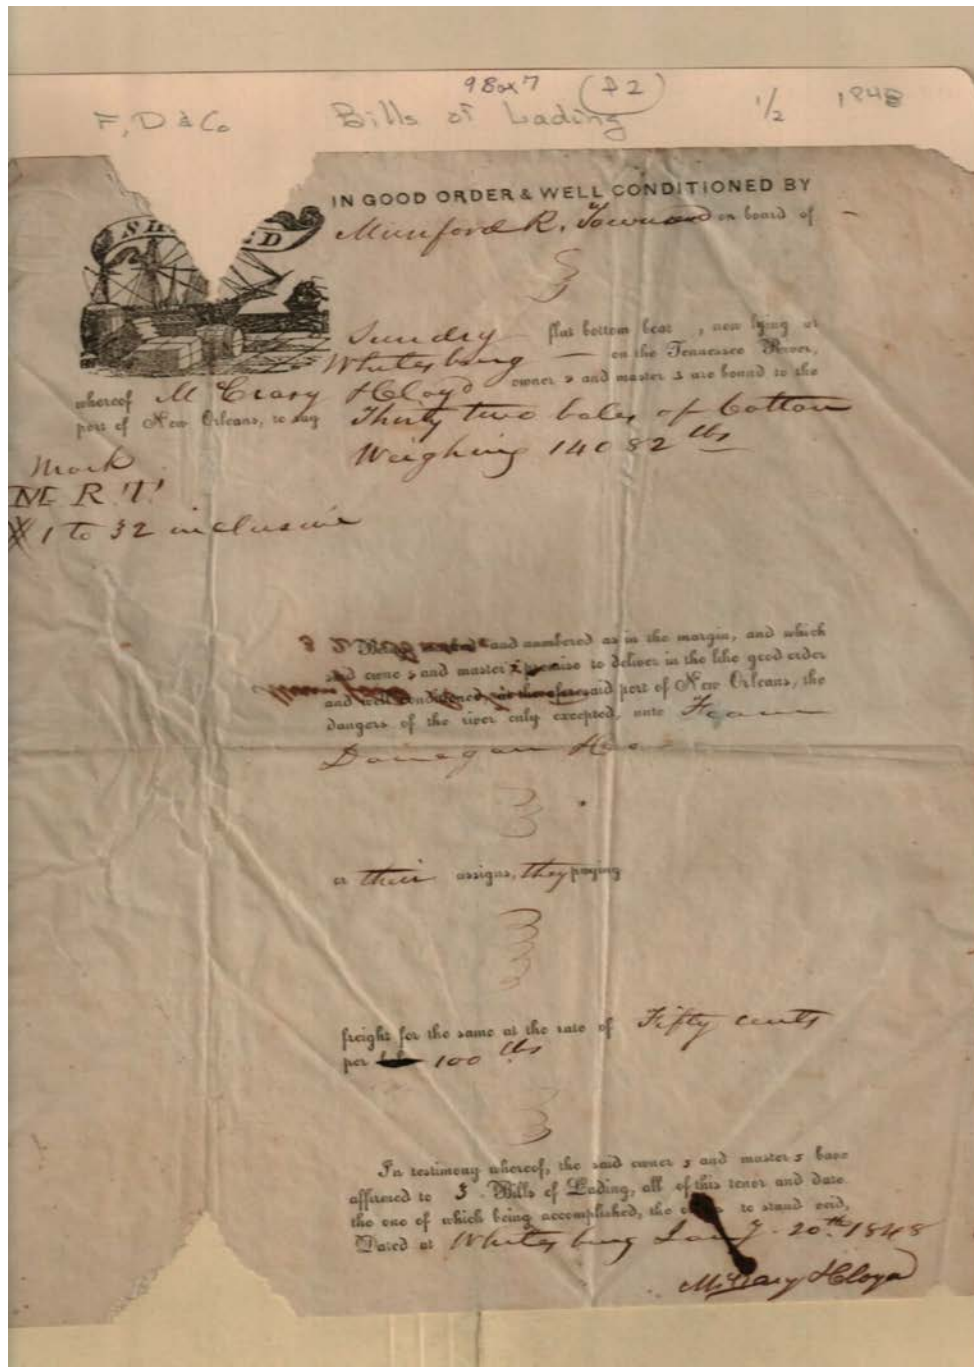 9 Box 7 (P2)
F, D & Co Bills of Lading 1/2 1848
IN GOOD ORDER & WELL CONDITIONED BY
SH ED Munford R. Townsend on board of
Sundry flat bottom boat , now lying at
Whitesburg — on the Tennessee River,
whereof McCrary & Cloyd owner s and master s are bound to the
port of New Orleans, to say Thirty two bales of Cotton
Weighing 14082 lbs
Mark
M R T
1 to 32 inclusive
and numbered as in the margin, and which
said owne s and master promise to deliver in the like good order
and well conditioned, at the aforesaid port of New Orleans, the
dangers of the river only excepted, unto Fearn
Donegan & Co
or their assigns, they paying
freight for the same at the rate of Fifty cents
per 100 lbs
In testimony whereof, the said owner s and master s have
affirmed to 3 Bills of Lading, all of this tenor and date
the one of which being accomplished, the to stand void,
Dated at Whitesburg Jany. 20th 1848
McCrary & Cloyd